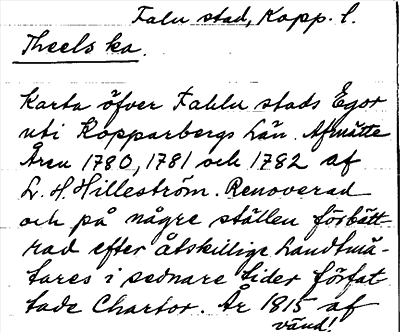 Falu stad, Kopp. l.
Theels ka.
Karta öfver Fahlu stads Egor
uti Kopparbergs Län. Afmätte
Åren 1780, 1781 och 1782 af
L. H. Hilleström. Renoverad
och på någre ställen förbätt-
rad efter åtskillige Landtmä-
tares i sednare tider förfat
tade Chartor. År 1815 af
vänd!